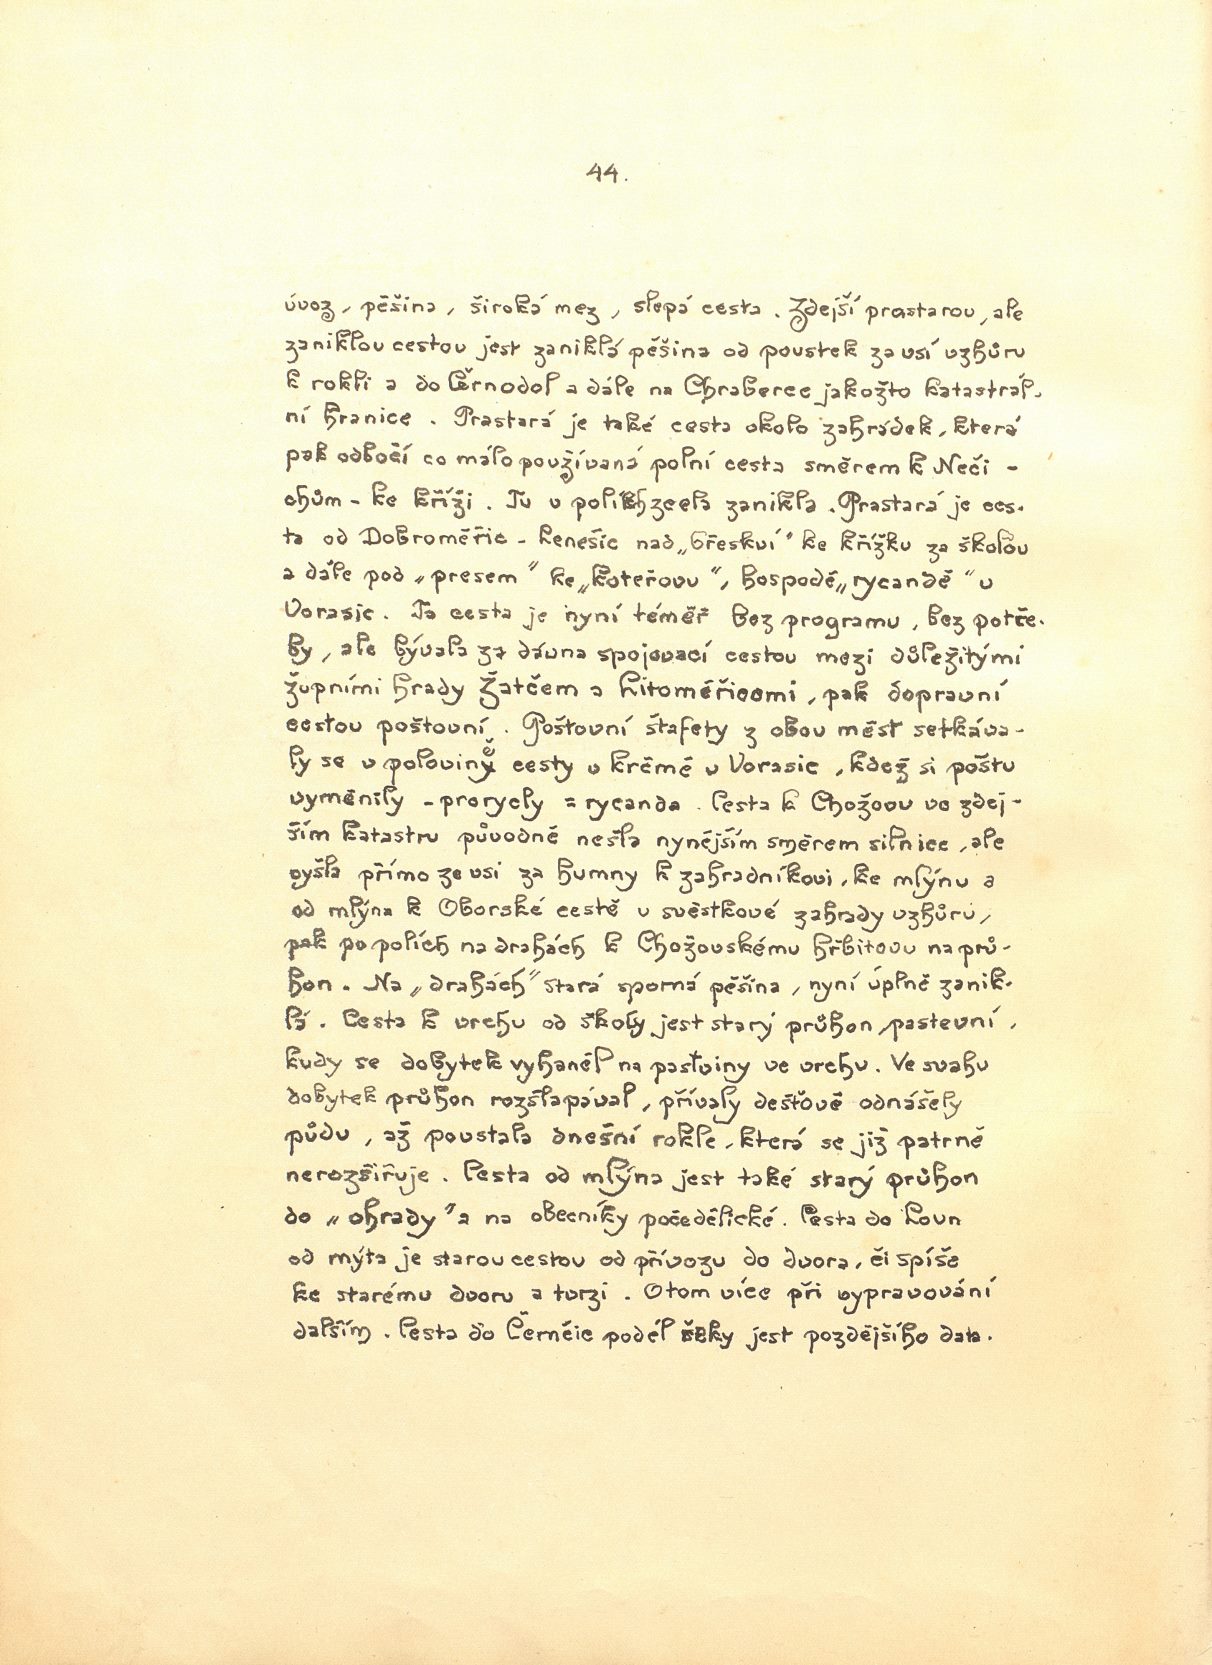 44.
úvoz, pěšina, široká mez, slepá cesta. Zdejší prastarou, ale
zaniklou cestou jest zaniklá pěšina od poustek za vsí vzhůru
k rokli a do Černodol a dále na Chraberce jakožto katastrál-
ní hranice. Prastará je také cesta okolo zahrádek, která
pak odbočí co málo používaná polní cesta směrem k Neči-
chům - ke kříži. Tu v polích zcela zanikla. Prastará je ces-
ta od Dobroměřic - Lenešic nad „Břeskví" ke křížku za školou
a dále pod „presem" ke „koteřovu", hospodě „rycandě" u
Vorasic. Ta cesta je nyní téměř bez programu, bez potře-
by, ale bývala za dávna spojovací cestou mezi důležitými
župními hrady Žatčem a Litoměřicemi, pak dopravní
cestou poštovní. Poštovní štafety z obou měst setkáva-
ly se v polovině cesty v krčmě u Vorasic, kdež si poštu
vyměnily - prorycly = rycanda. Cesta k Chožovu ve zdej-
ším katastru původně nešla nynějším směrem silnice, ale
vyšla přímo ze vsi za humny k zahradníkovi, ke mlýnu a
od mlýna k Oborské cestě u svěstkové zahrady vzhůru,
pak po polích na drahách k Chožovskému hřbitovu na prů-
hon. Na „drahách" stará sporná pěšina, nyní úplně zanik-
lá. Cesta k vrchu od školy jest starý průhon, pastevní,
kudy se dobytek vyháněl na pastviny ve vrchu. Ve svahu
dobytek průhon rozšlapával, přívaly dešťově odnášely
půdu, až povstala dnešní rokle, která se již patrně
nerozšiřuje. Cesta od mlýna jest také starý průhon
do „ohrady" a na obecníky počedělické. Cesta do Loun
od mýta je starou cestou od přívozu do dvora, či spíše
ke starému dvoru a tvrzi. O tom více při vypravování
dalším. Cesta do Černčic podél řeky jest pozdějšího data.